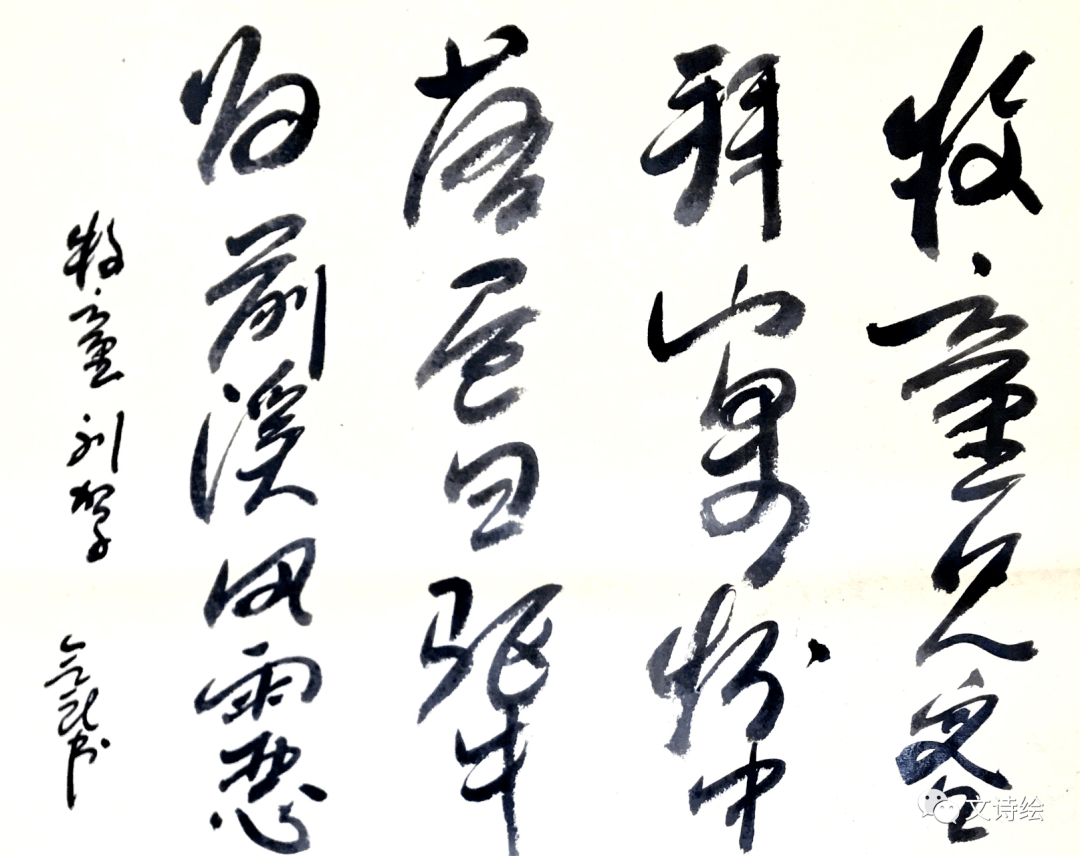 牧童见客
拜山果怀中
落昼日驱牛
归前溪风雨恶
牧童 刘驾
书
文诗绘